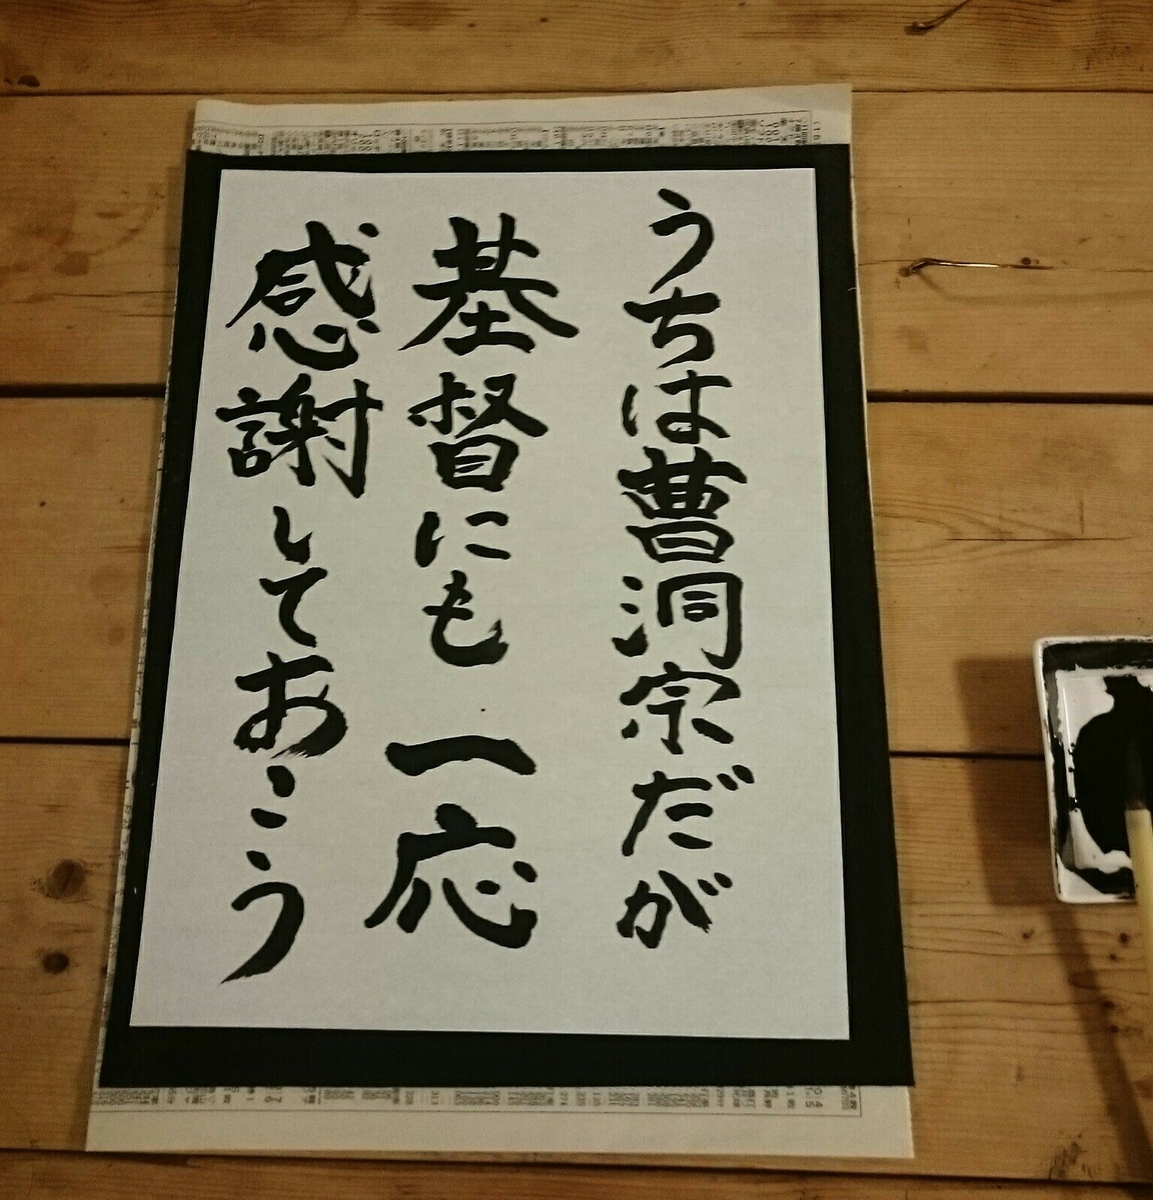 うちは曹洞宗だが
基督にも一応
感謝しておこう